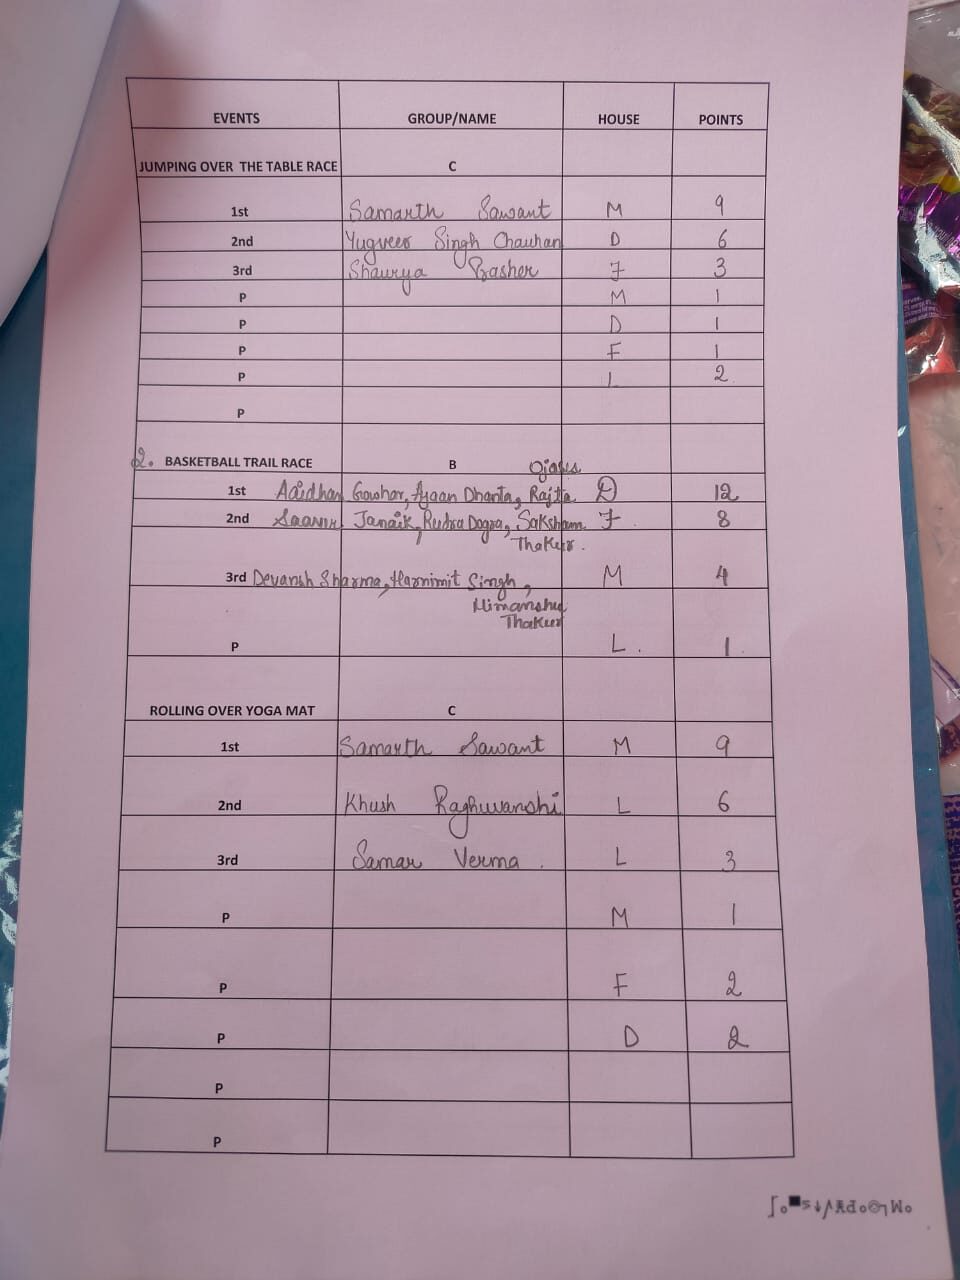 EVENTS GROUP/NAME HOUSE POINTS
JUMPING OVER THE TABLE RACE C
1st Samarth Sawant M 9
2nd Yugveer Singh Chauhan D 6
3rd Shaurya Basher F 3
P M 1
P D 1
P F 1
P L 2
P
2. BASKETBALL TRAIL RACE B
1st Aaidhan Ayaan Dhanta, Rajta D 12
2nd Janaik, Rudra Dogra, Saksham F 8
Thakur.
3rd Devansh Sharma, Harnimit Singh, M 4
Himanshu
Thakur
P L. 1.
ROLLING OVER YOGA MAT C
1st Samarth Sawant M 9
2nd Khush Raghuwanshi L 6
3rd Samar Verma. L 3
P M 1
P F 2
P D 2
P
P